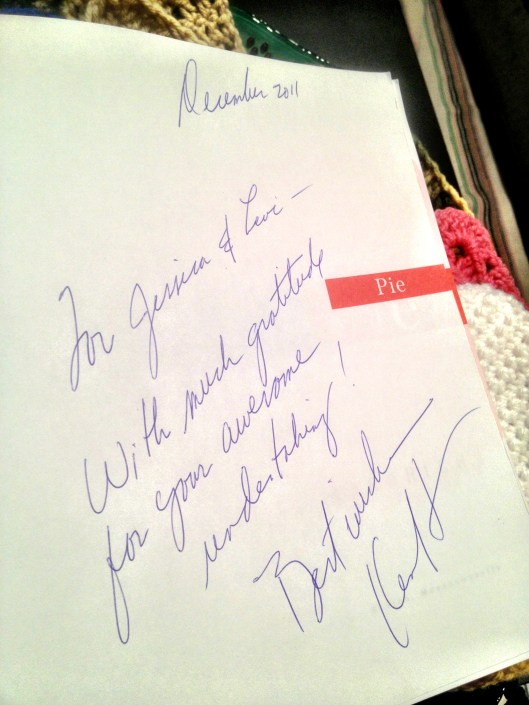 December 2011
For Jessica & Levi —
Pie
With much gratitude
for your awesome
undertaking!
Best wishes
Ken H